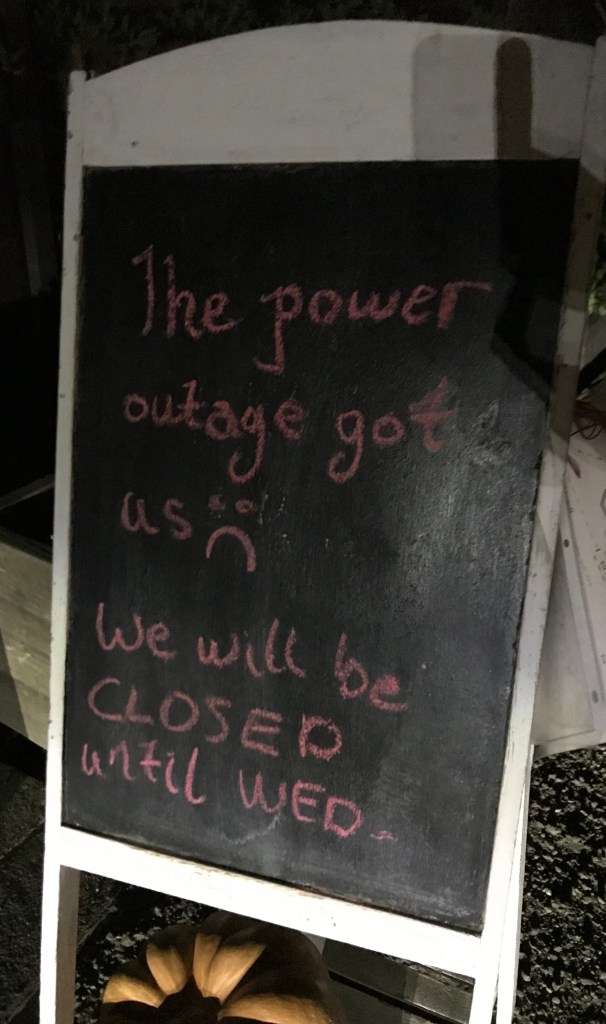 The power
outage got
us :(
We will be
CLOSED
until WED.